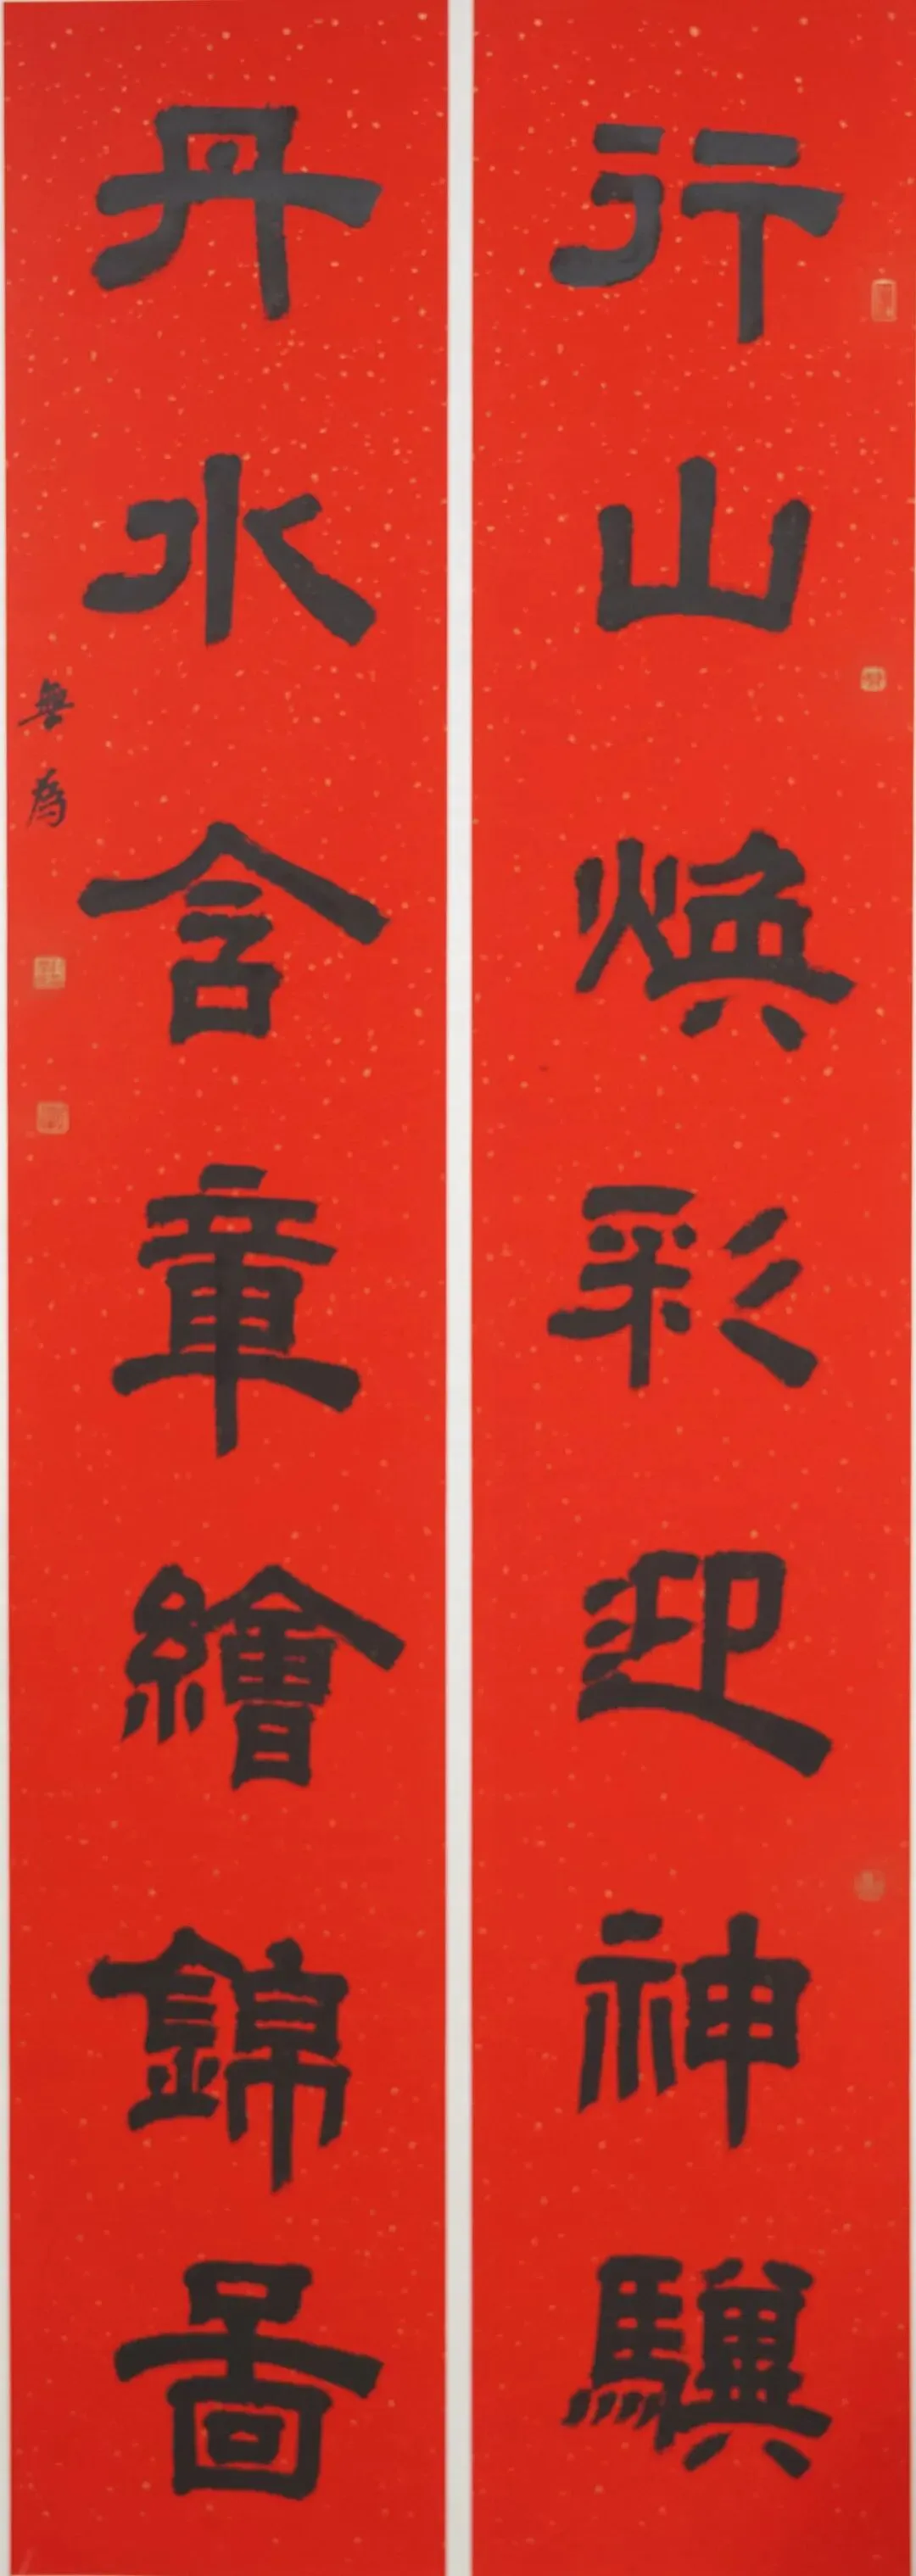 行山煥彩迎神驥
丹水含章繪錦啚
無為